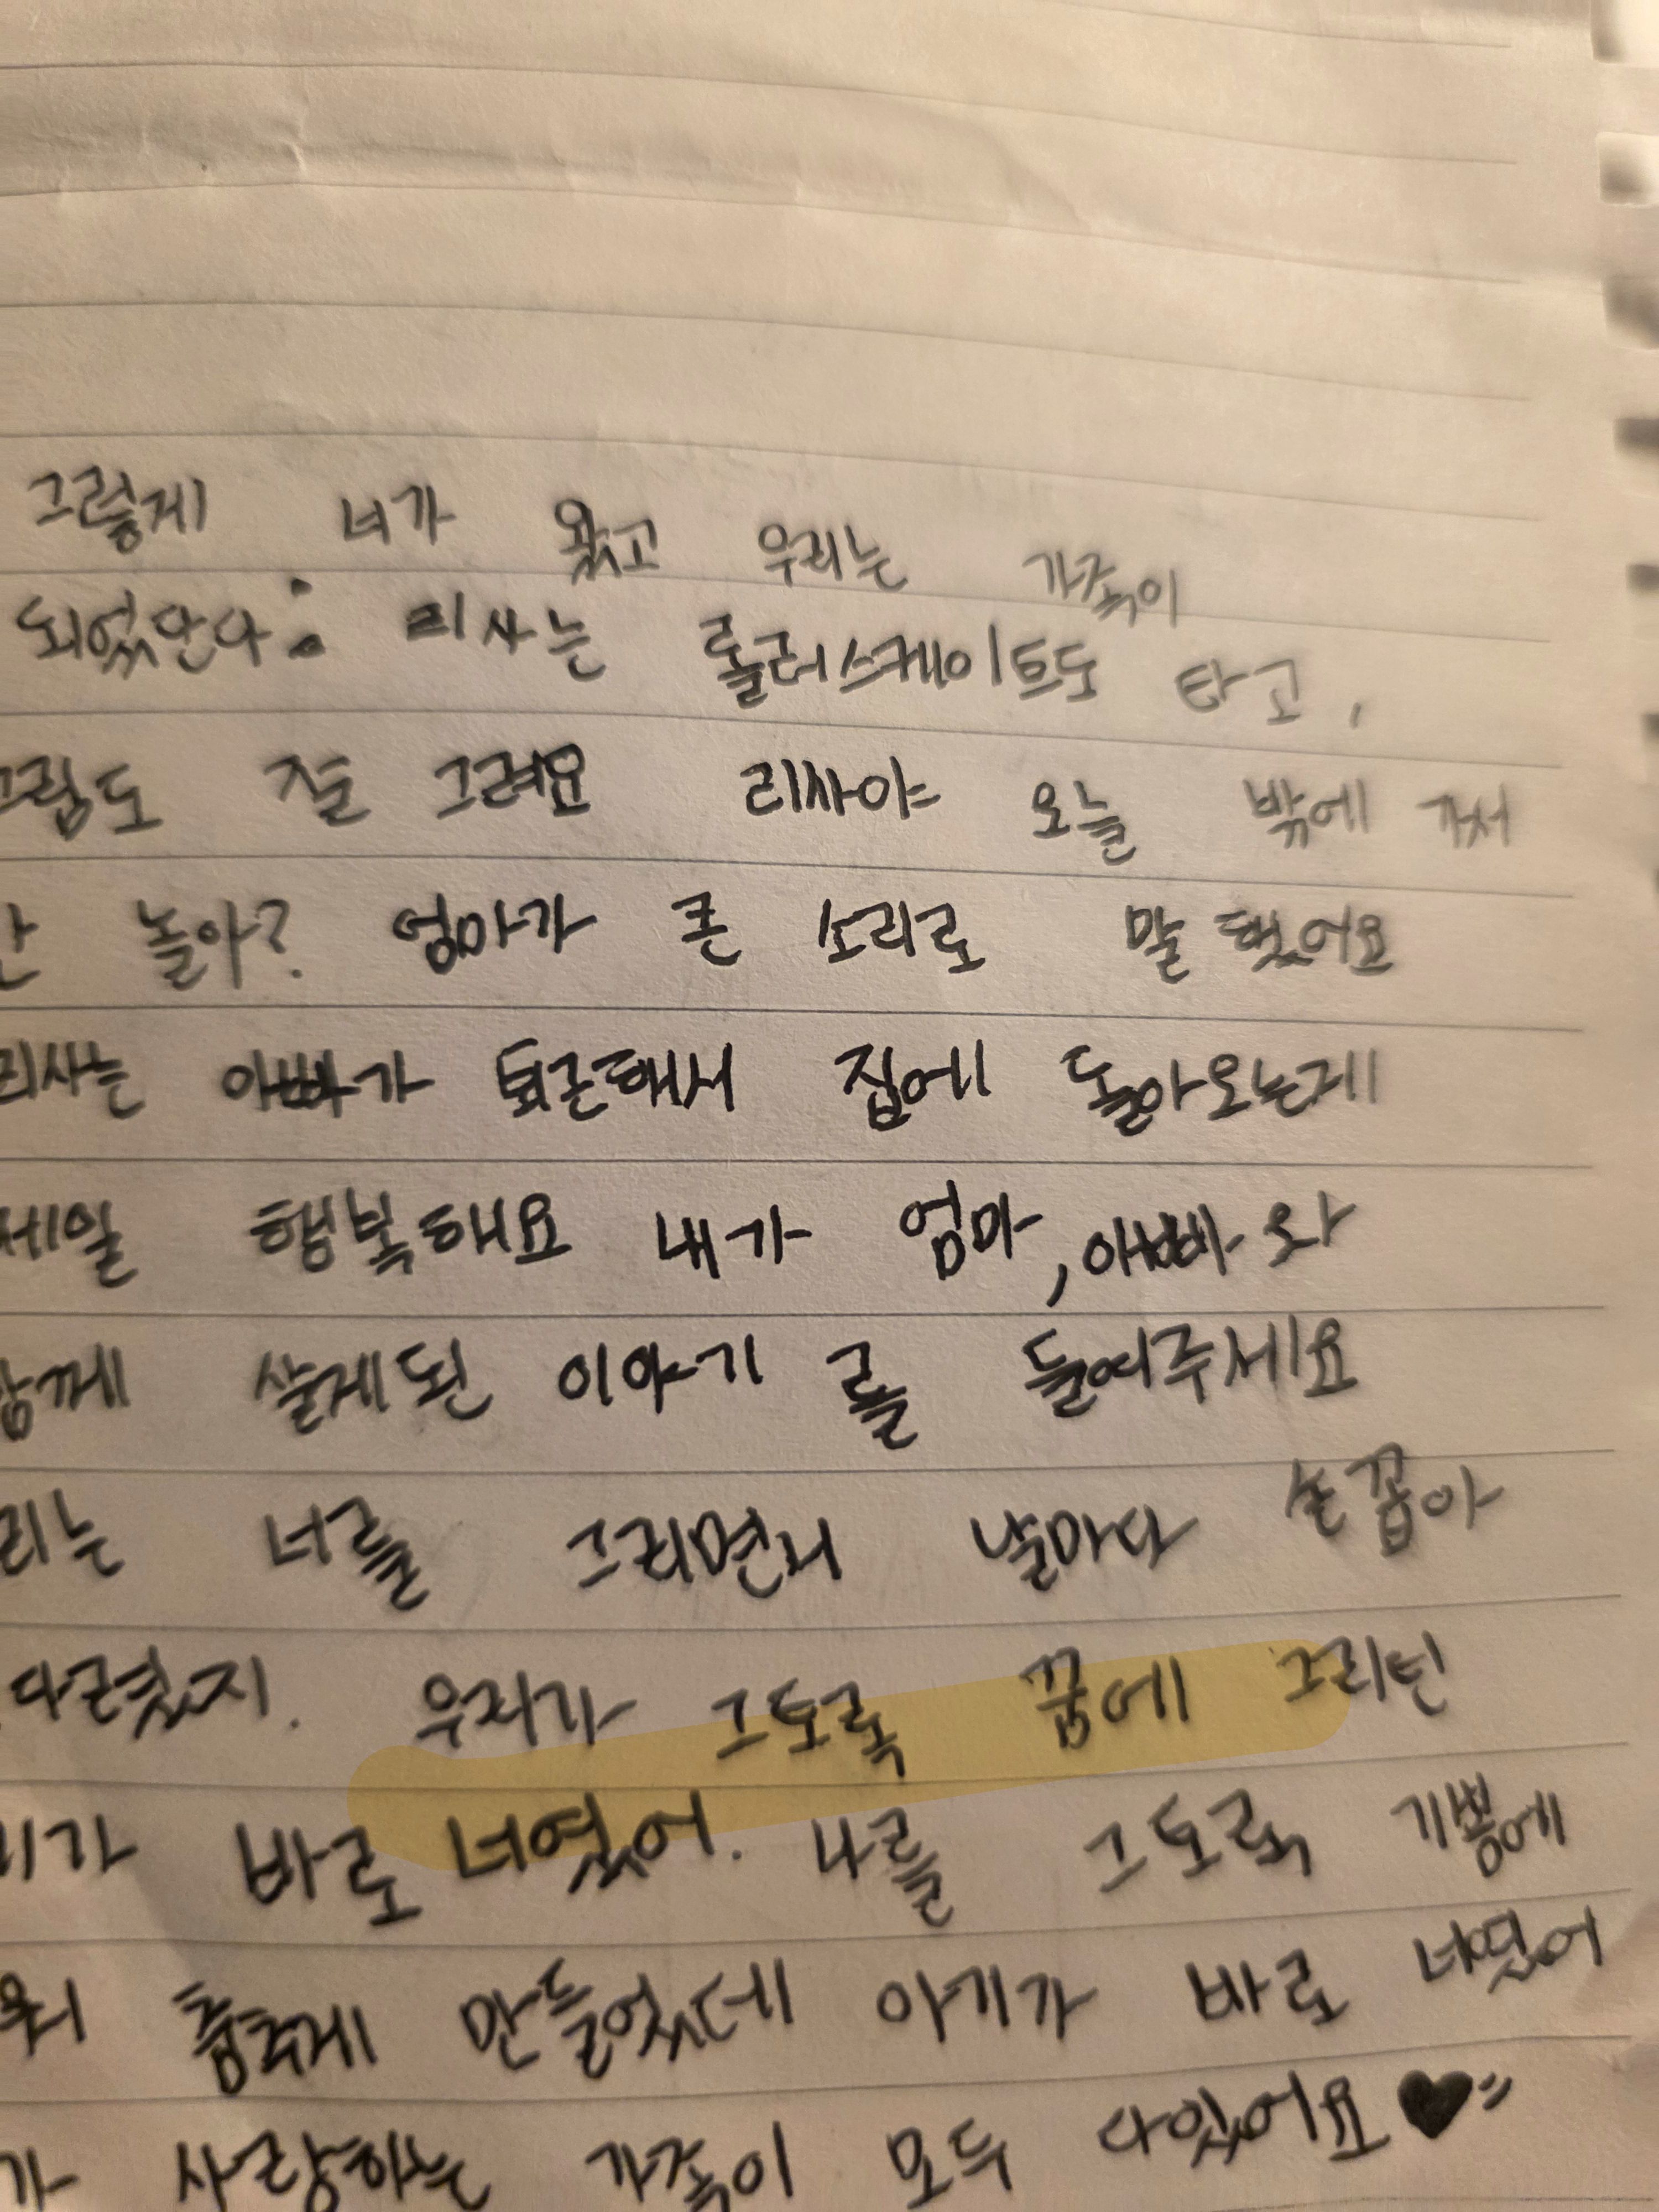 그렇게 너가 왔고 우리는 가족이
되었단다: 리사는 롤러스케이트도 타고,
그림도 잘 그려요 리사야 오늘 밖에 가서
안 놀아? 엄마가 큰 소리로 말했어요
리사는 아빠가 퇴근해서 집에 돌아오는게
제일 행복해요 내가 엄마, 아빠와
함께 살게된 이야기를 들여주세요
리는 너를 그리면서 날마다 손꼽아
다렸지. 우리가 그토록 꿈에 그리던
기가 바로 너였어. 나를 그토록 기쁨에
춤추게 만들었던데 아기가 바로 너였어
가 사랑하는 가족이 모두 다있어요♥